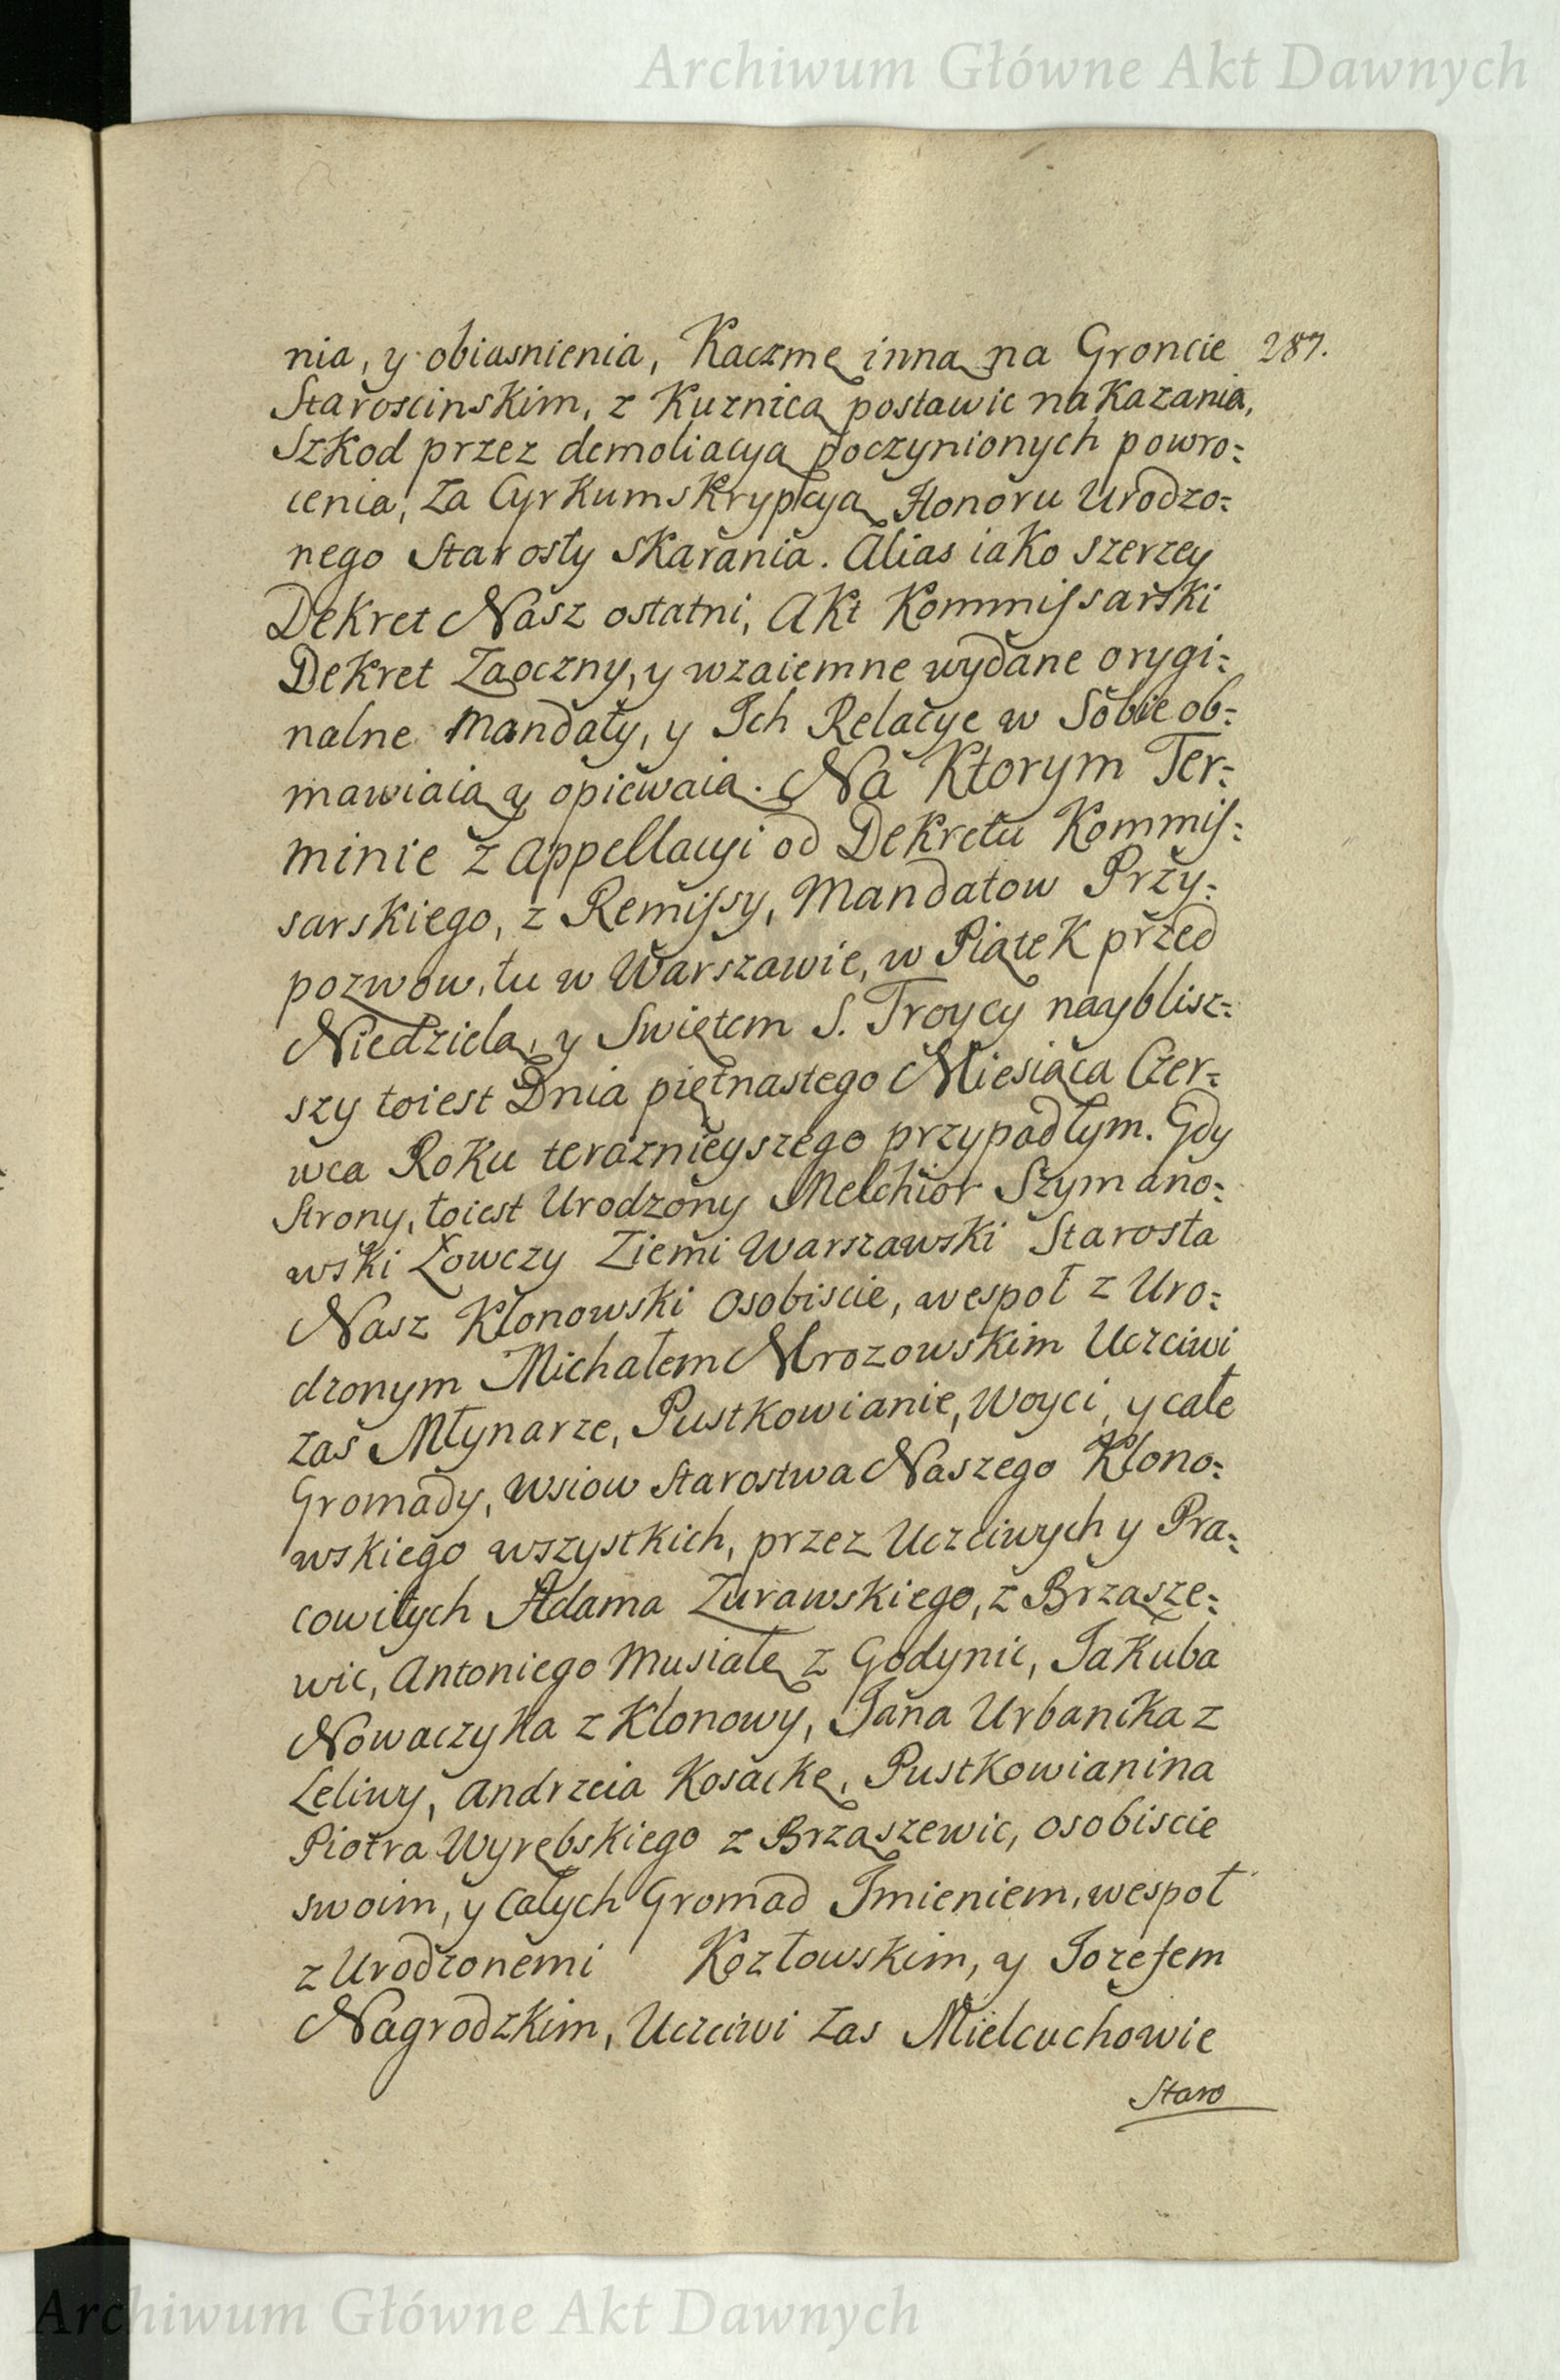 Archiwum Główne Akt Dawnych
nia, y obiasnienia, Kaczmę inną na Groncie 287.
Staroscinskim, z Kuznicą postawic nakazania,
Szkod przez demoliacyą poczynionych powro=
cenia, za Cyrkumskrypcyą Honoru Urodzo=
nego Starosty skarania. Alias iako szerzey
Dekret Nasz ostatni, Akt Kommissarski
Dekret Zaoczny, y wzaiemne wydane orygi=
nalne Mandaty, y Ich Relacye w Sobie ob=
mawiaią y opiewaią. Na Ktorym Ter=
minie z Appellacyi od Dekretu Kommis=
sarskiego, z Remissy, Mandatow Przy=
pozwow, tu w Warszawie, w Piątek przed
Niedzielą, y Swiętem S. Troycy nayblisz=
szy toiest Dnia piętnastego Miesiąca Czer=
wca Roku teraznieyszego przypadłym. Gdy
Strony, toiest Urodzony Melchior Szymano=
wski Łowczy Ziemi Warszawski Starosta
Nasz Klonowski Osobiscie, wespoł z Uro=
dzonym Michałem Mrozowskim Uczciwi
zas Młynarze, Pustkowianie, Woyci, y całe
Gromady, Wsiow Starostwa Naszego Klono=
wskiego wszystkich, przez Uczciwych y Pra=
cowitych Adama Zurawskiego, z Brząsze=
wic, Antoniego Musiałę z Godynic, Jakuba
Nowaczyka z Klonowy, Jana Urbanika z
Leliwy, Andrzeia Kosackę, Pustkowianina
Piotra Wyrębskiego z Brząszewic, osobiscie
swoim, y całych Gromad Imieniem, wespoł
z Urodzonemi Kozłowskim, y Jozefem
Nagrodzkim, Uczciwi zas Mielcuchowie
Staro
Archiwum Główne Akt Dawnych